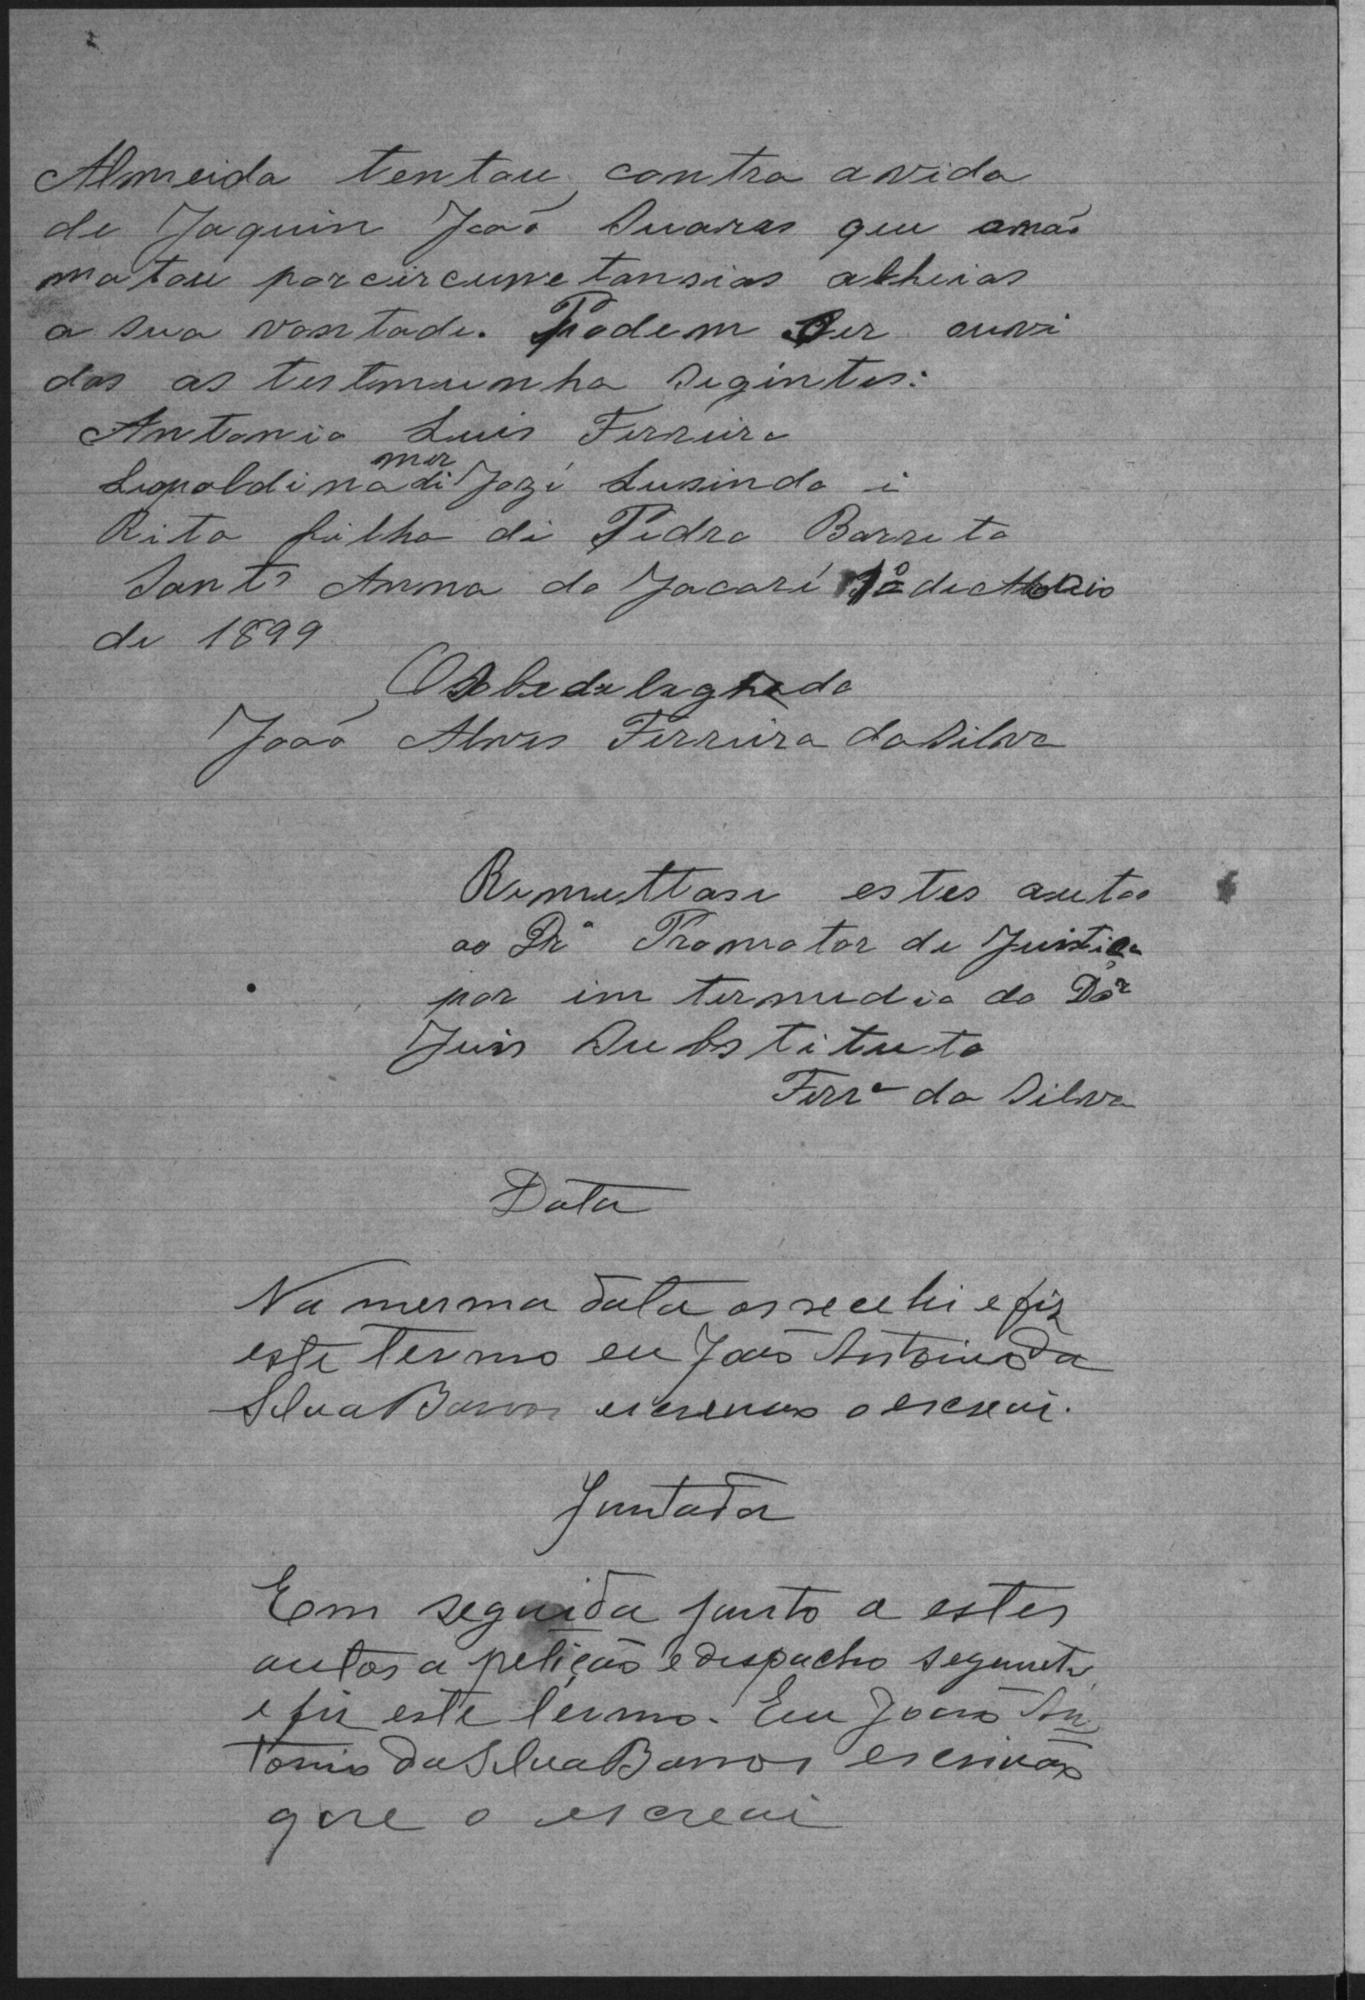 Almeida tentou contra a vida
de Jaquin João Suares que onão
matou por circumstansias alheias
a sua vontade. Podem ser ouvi
dos as testmunha segintes:
Antonio Luis Ferreira
mer
Leopoldina di Jozé Lusindo i
Rita filha di Pidro Barreto
Santa Anna do Jacaré 1º de Maio
de 1899
O Sobedelegado
João Alves Ferreira da Silva
Remettase estes autos
ao Dr. Promotor de Justiça
por im termedio do Dor
Juis Substituto
Ferra da Silva
Data
Na mesma data os recebi e fiz
este termo eu João Antonio da
Silva Barros escrivao o escrevi.
Juntada
Em seguida junto a estes
autos a petição e despacho segunte
e fiz este termo. Eu João An
tonio da Silva Barros escrivão
que o escrevi